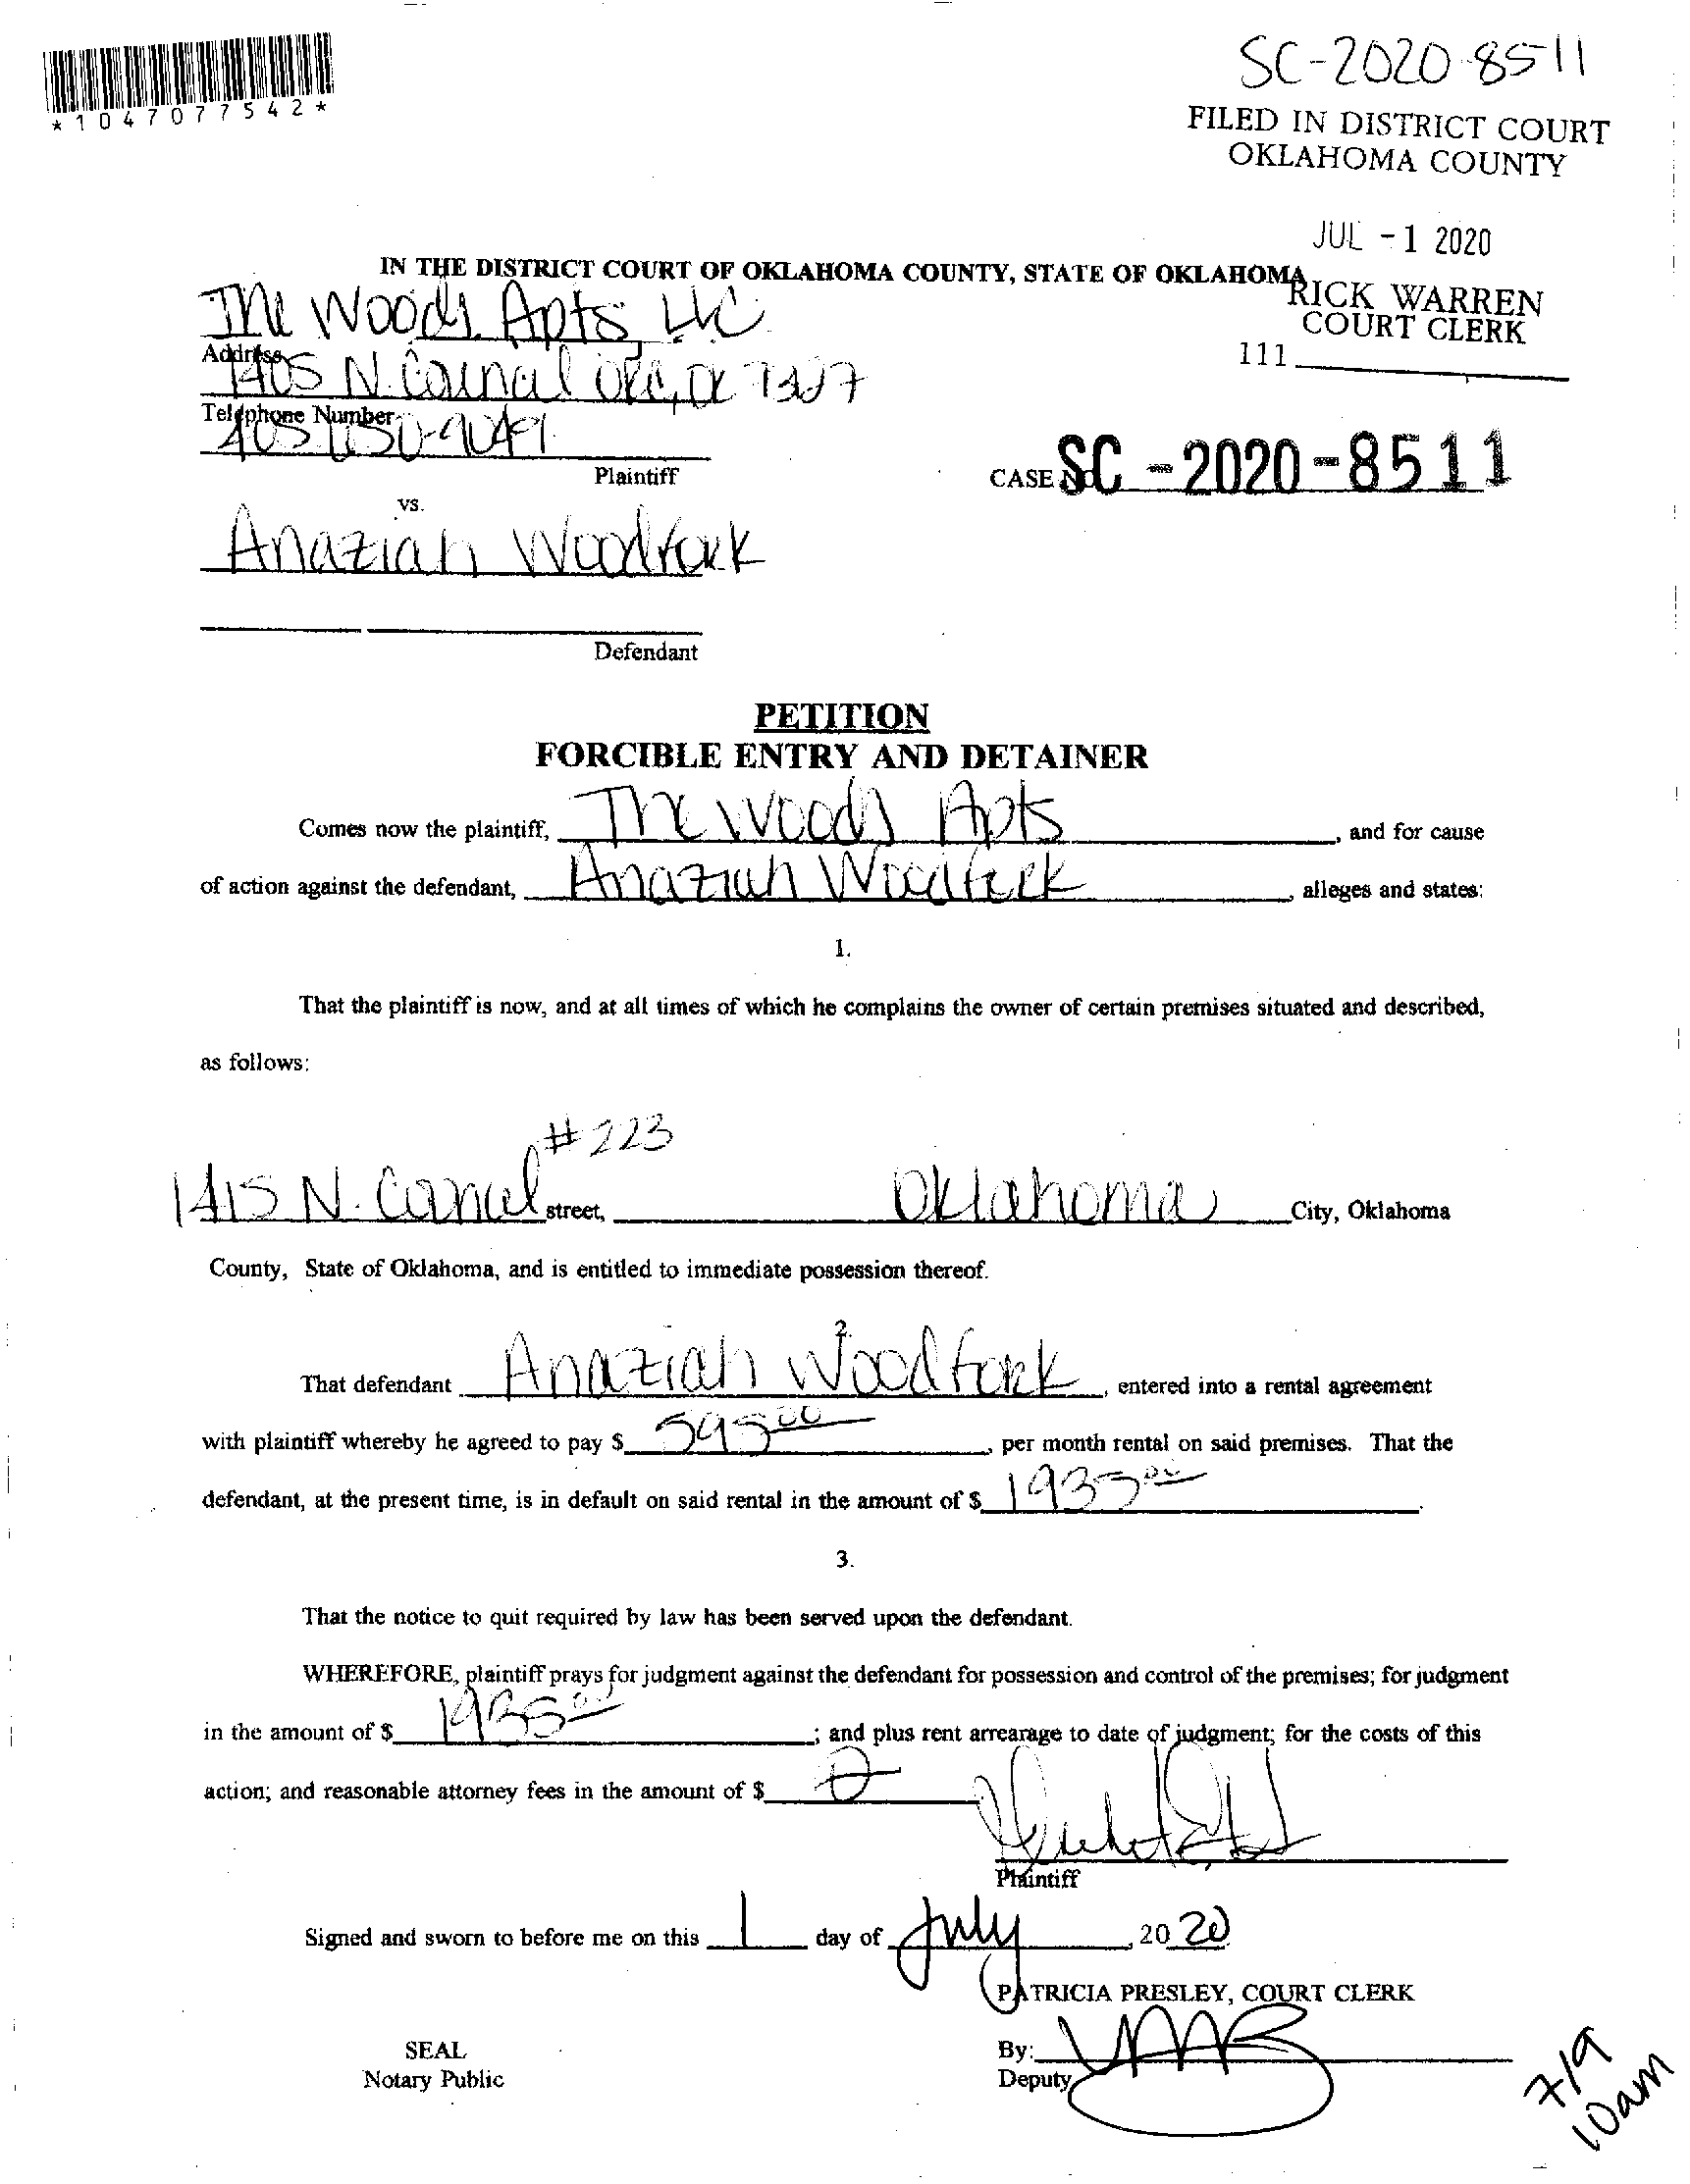 SC-2020-8511
*1047077542*
FILED IN DISTRICT COURT
OKLAHOMA COUNTY
JUL -1 2020
IN THE DISTRICT COURT OF OKLAHOMA COUNTY, STATE OF OKLAHOMA
RICK WARREN
COURT CLERK
111
The Woods Apts, LLC
Address
1405 N. OKC, OK
Telephone Number
405
Plaintiff
CASE No. SC-2020-8511
vs.
Anaziah Woodfork
Defendant
PETITION
FORCIBLE ENTRY AND DETAINER
Comes now the plaintiff, The Woods Apts, and for cause
of action against the defendant, Anaziah Woodfork, alleges and states:
1.
That the plaintiff is now, and at all times of which he complains the owner of certain premises situated and described,
as follows:
#223
1415 N. street, Oklahoma City, Oklahoma
County, State of Oklahoma, and is entitled to immediate possession thereof.
2.
That defendant Anaziah Woodfork, entered into a rental agreement
with plaintiff whereby he agreed to pay $ 595.00, per month rental on said premises. That the
defendant, at the present time, is in default on said rental in the amount of $ 1935.00.
3.
That the notice to quit required by law has been served upon the defendant.
WHEREFORE, plaintiff prays for judgment against the defendant for possession and control of the premises; for judgment
in the amount of $ 1935.00; and plus rent arrearage to date of judgment; for the costs of this
action; and reasonable attorney fees in the amount of $
Plaintiff
Signed and sworn to before me on this 1 day of July, 2020
PATRICIA PRESLEY, COURT CLERK
SEAL
Notary Public
By:
Deputy
7/9
10am